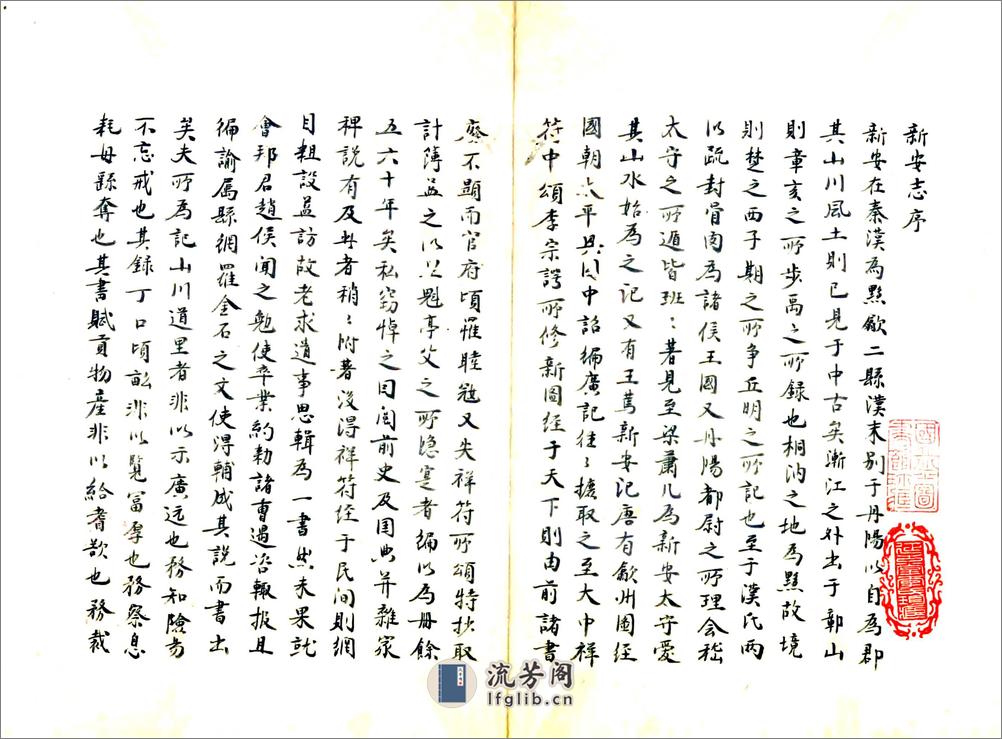 新安志序
新安在秦漢為黟歙二縣漢末別于丹陽以自為郡
其山川風土則已見于中古矣漸江之外出于鄣山
則章亥之所步禹之所錄也桐汭之地為黟故境
則楚之西子期之所爭丘明之所記也至于漢氏兩
以疏封骨肉為諸侯王國又丹陽都尉之所理會稽
太守之所遁皆班：著見至梁蕭几為新安太守愛
其山水始為之記又有王篤新安記唐有歙州圖經
國朝太平興國中詔編廣記往：摭取之至大中祥
符中頌李宗諤所修新圖經于天下則由前諸書
廢不顯而官府頃罹睦寇又失祥符所頌特抄取
計簿益之以里魁亭父之所隐寔者編以為冊餘
五六十年矣私竊悼之間閱前史及國典并雜家
稗說有及此者稍：附著後得祥符經于民間則綱
目粗設益訪故老求遺事思輯為一書然未果就
會邦君趙侯聞之勉使卒業約勅諸曹遇咨輒報且
徧諭屬縣網羅金石之文使得輔成其說而書出
矣夫所為記山川道里者非以示廣远也務知險易
不忘戒也其録丁口頃畝非以覽富厚也務察息
耗毋繇奪也其書賦貢物產非以給耆欲也務裁
流芳阁
lfglib.cn